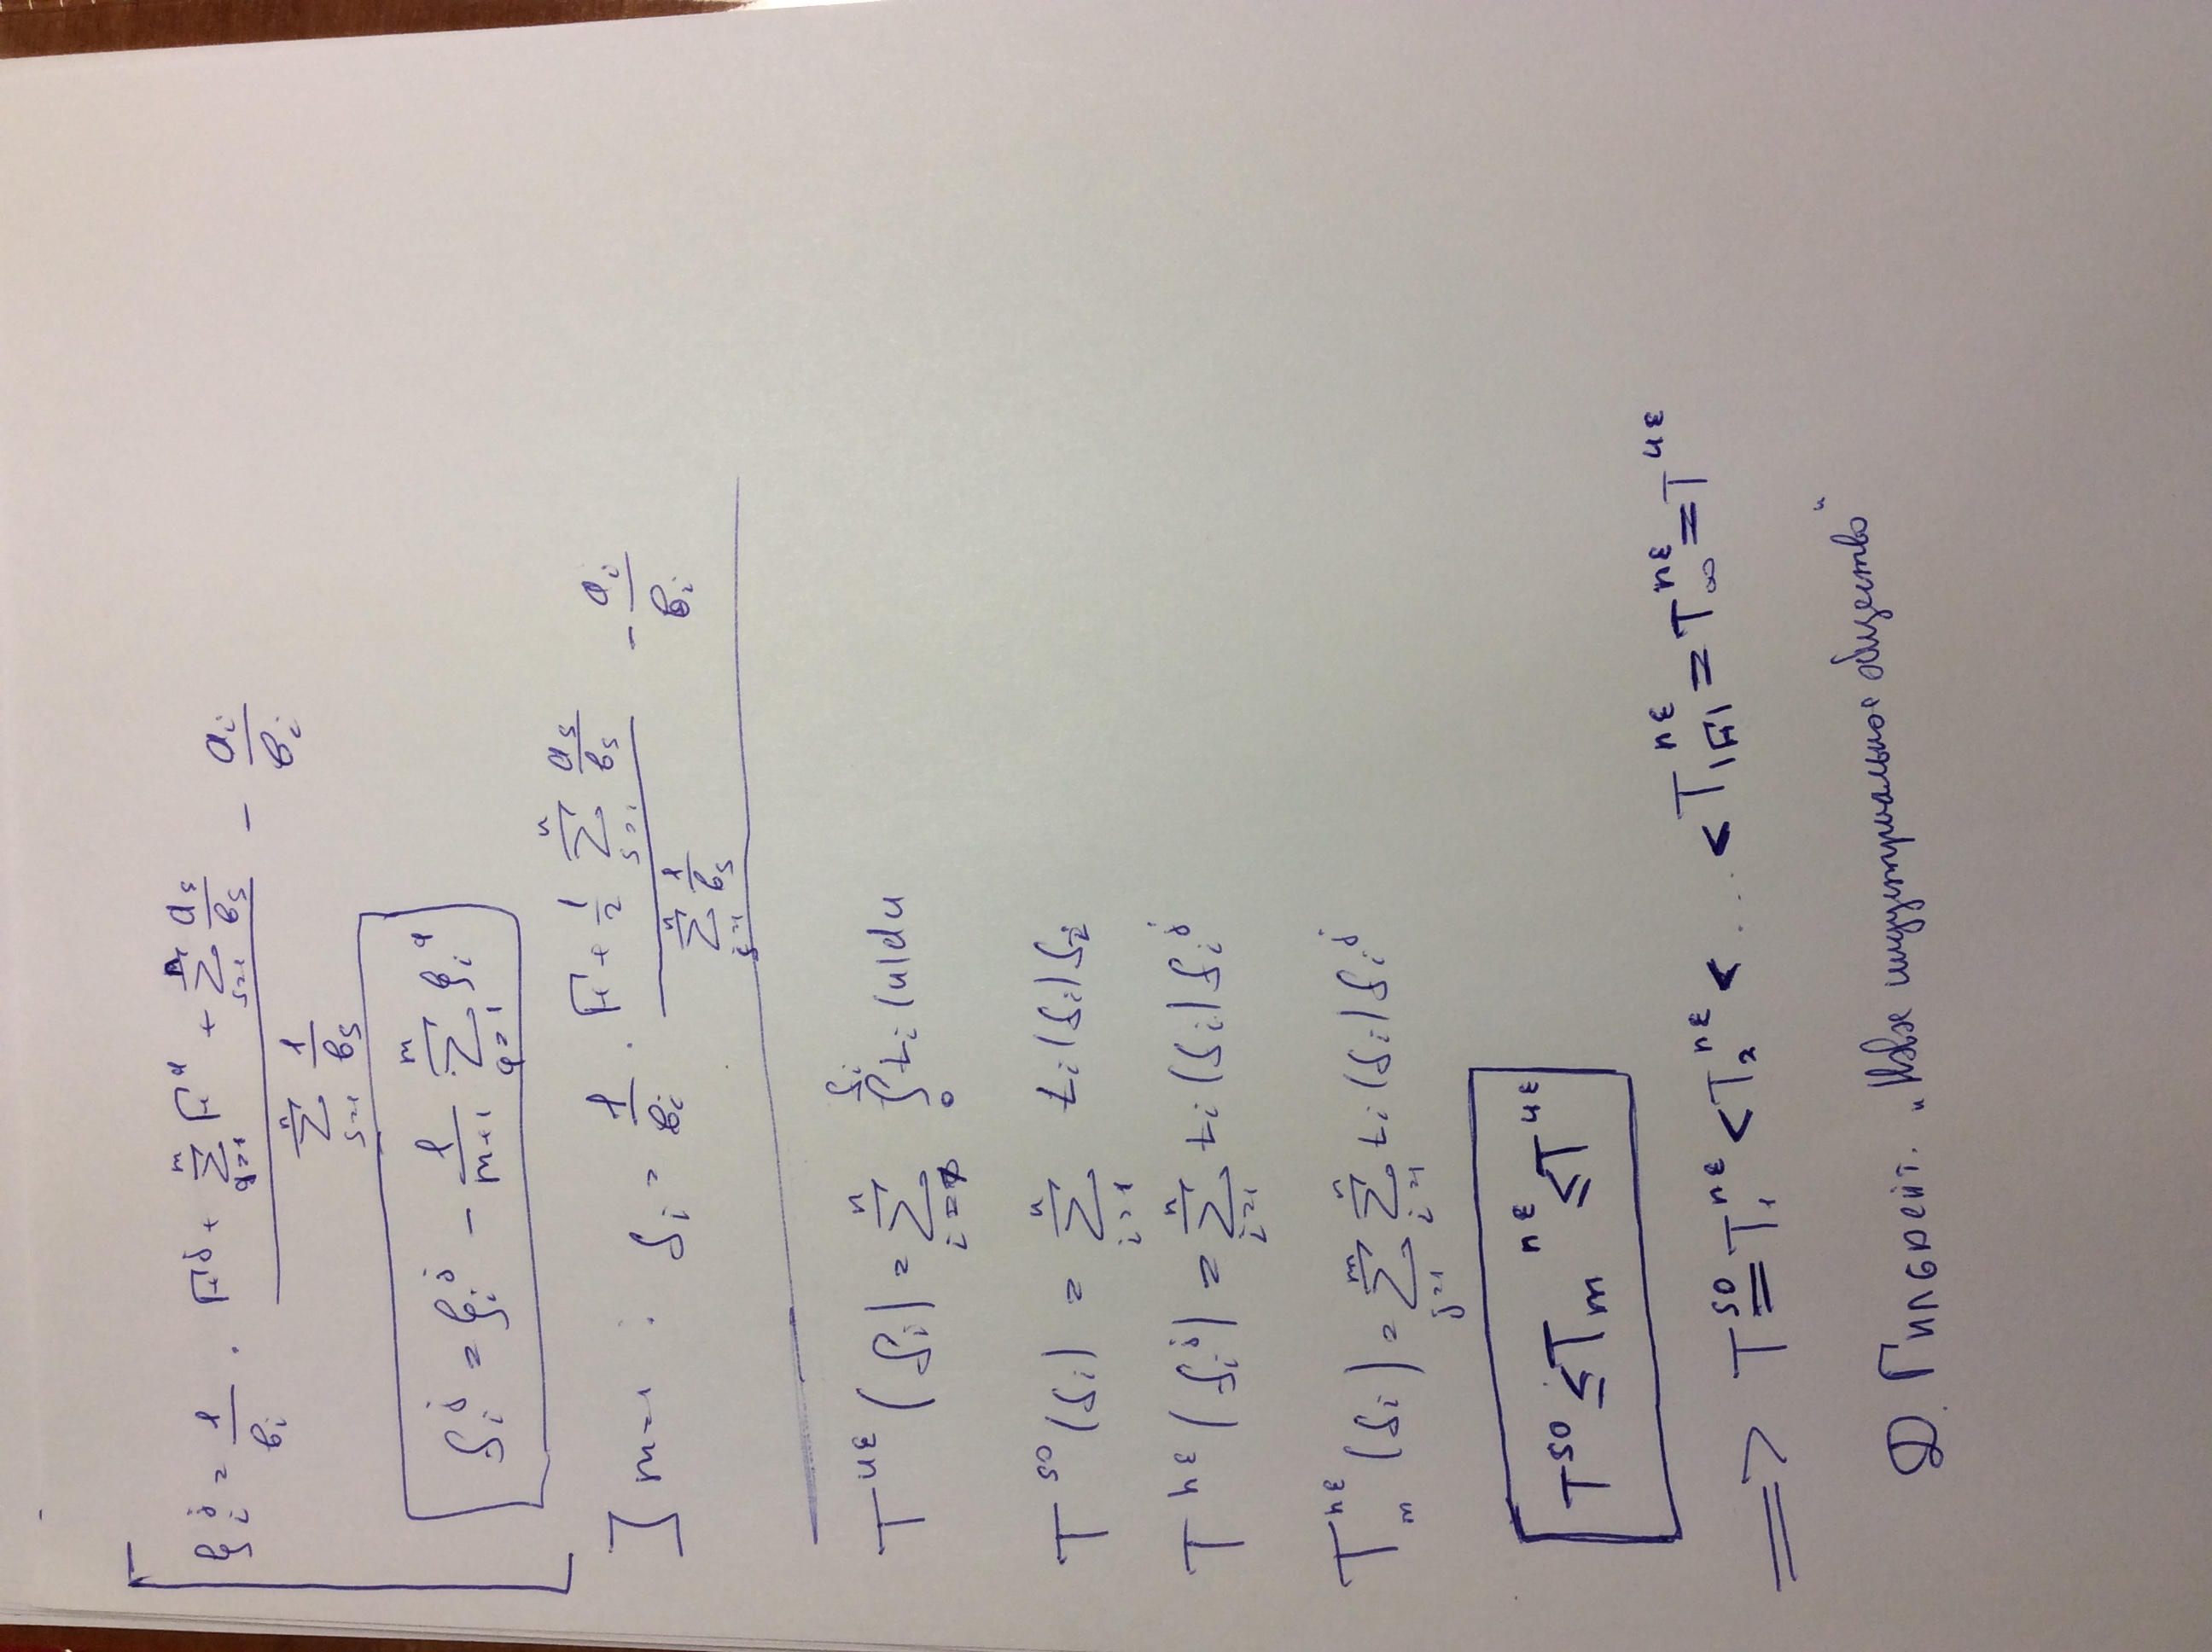 ξ_i^j = 1/b_i · (F^j + Σ_{q=1}^{m} F^q + Σ_{s=1}^{n} a_s/b_s) / (Σ_{s=1}^{n} 1/b_s) - a_i/b_i
f_i^j = ξ_i^j - 1/(m+1) Σ_{q=1}^{m} ξ_i^q
] m=1 : f_i = 1/b_i · (F + 1/2 Σ_{s=1}^{n} a_s/b_s) / (Σ_{s=1}^{n} 1/b_s) - a_i/b_i
T^{UE}(f_i) = Σ_{i=1}^{n} ∫_0^{f_i} t_i(u)du
T^{SO}(f_i) = Σ_{i=1}^{n} t_i(f_i)f_i
T^{NE}(f_i^j) = Σ_{i=1}^{n} t_i(f_i)f_i^j
T_m^{NE}(f_i) = Σ_{j=1}^{m} Σ_{i=1}^{n} t_i(f_i)f_i^j
T^{SO} ≤ T_m^{NE} ≤ T^{UE}
=> T^{SO} = T_1^{NE} < T_2^{NE} < ... < T_{|F|}^{NE} = T_∞^{NE} = T^{UE}
Д. Гилбрейт. „Новое индустриальное общество“